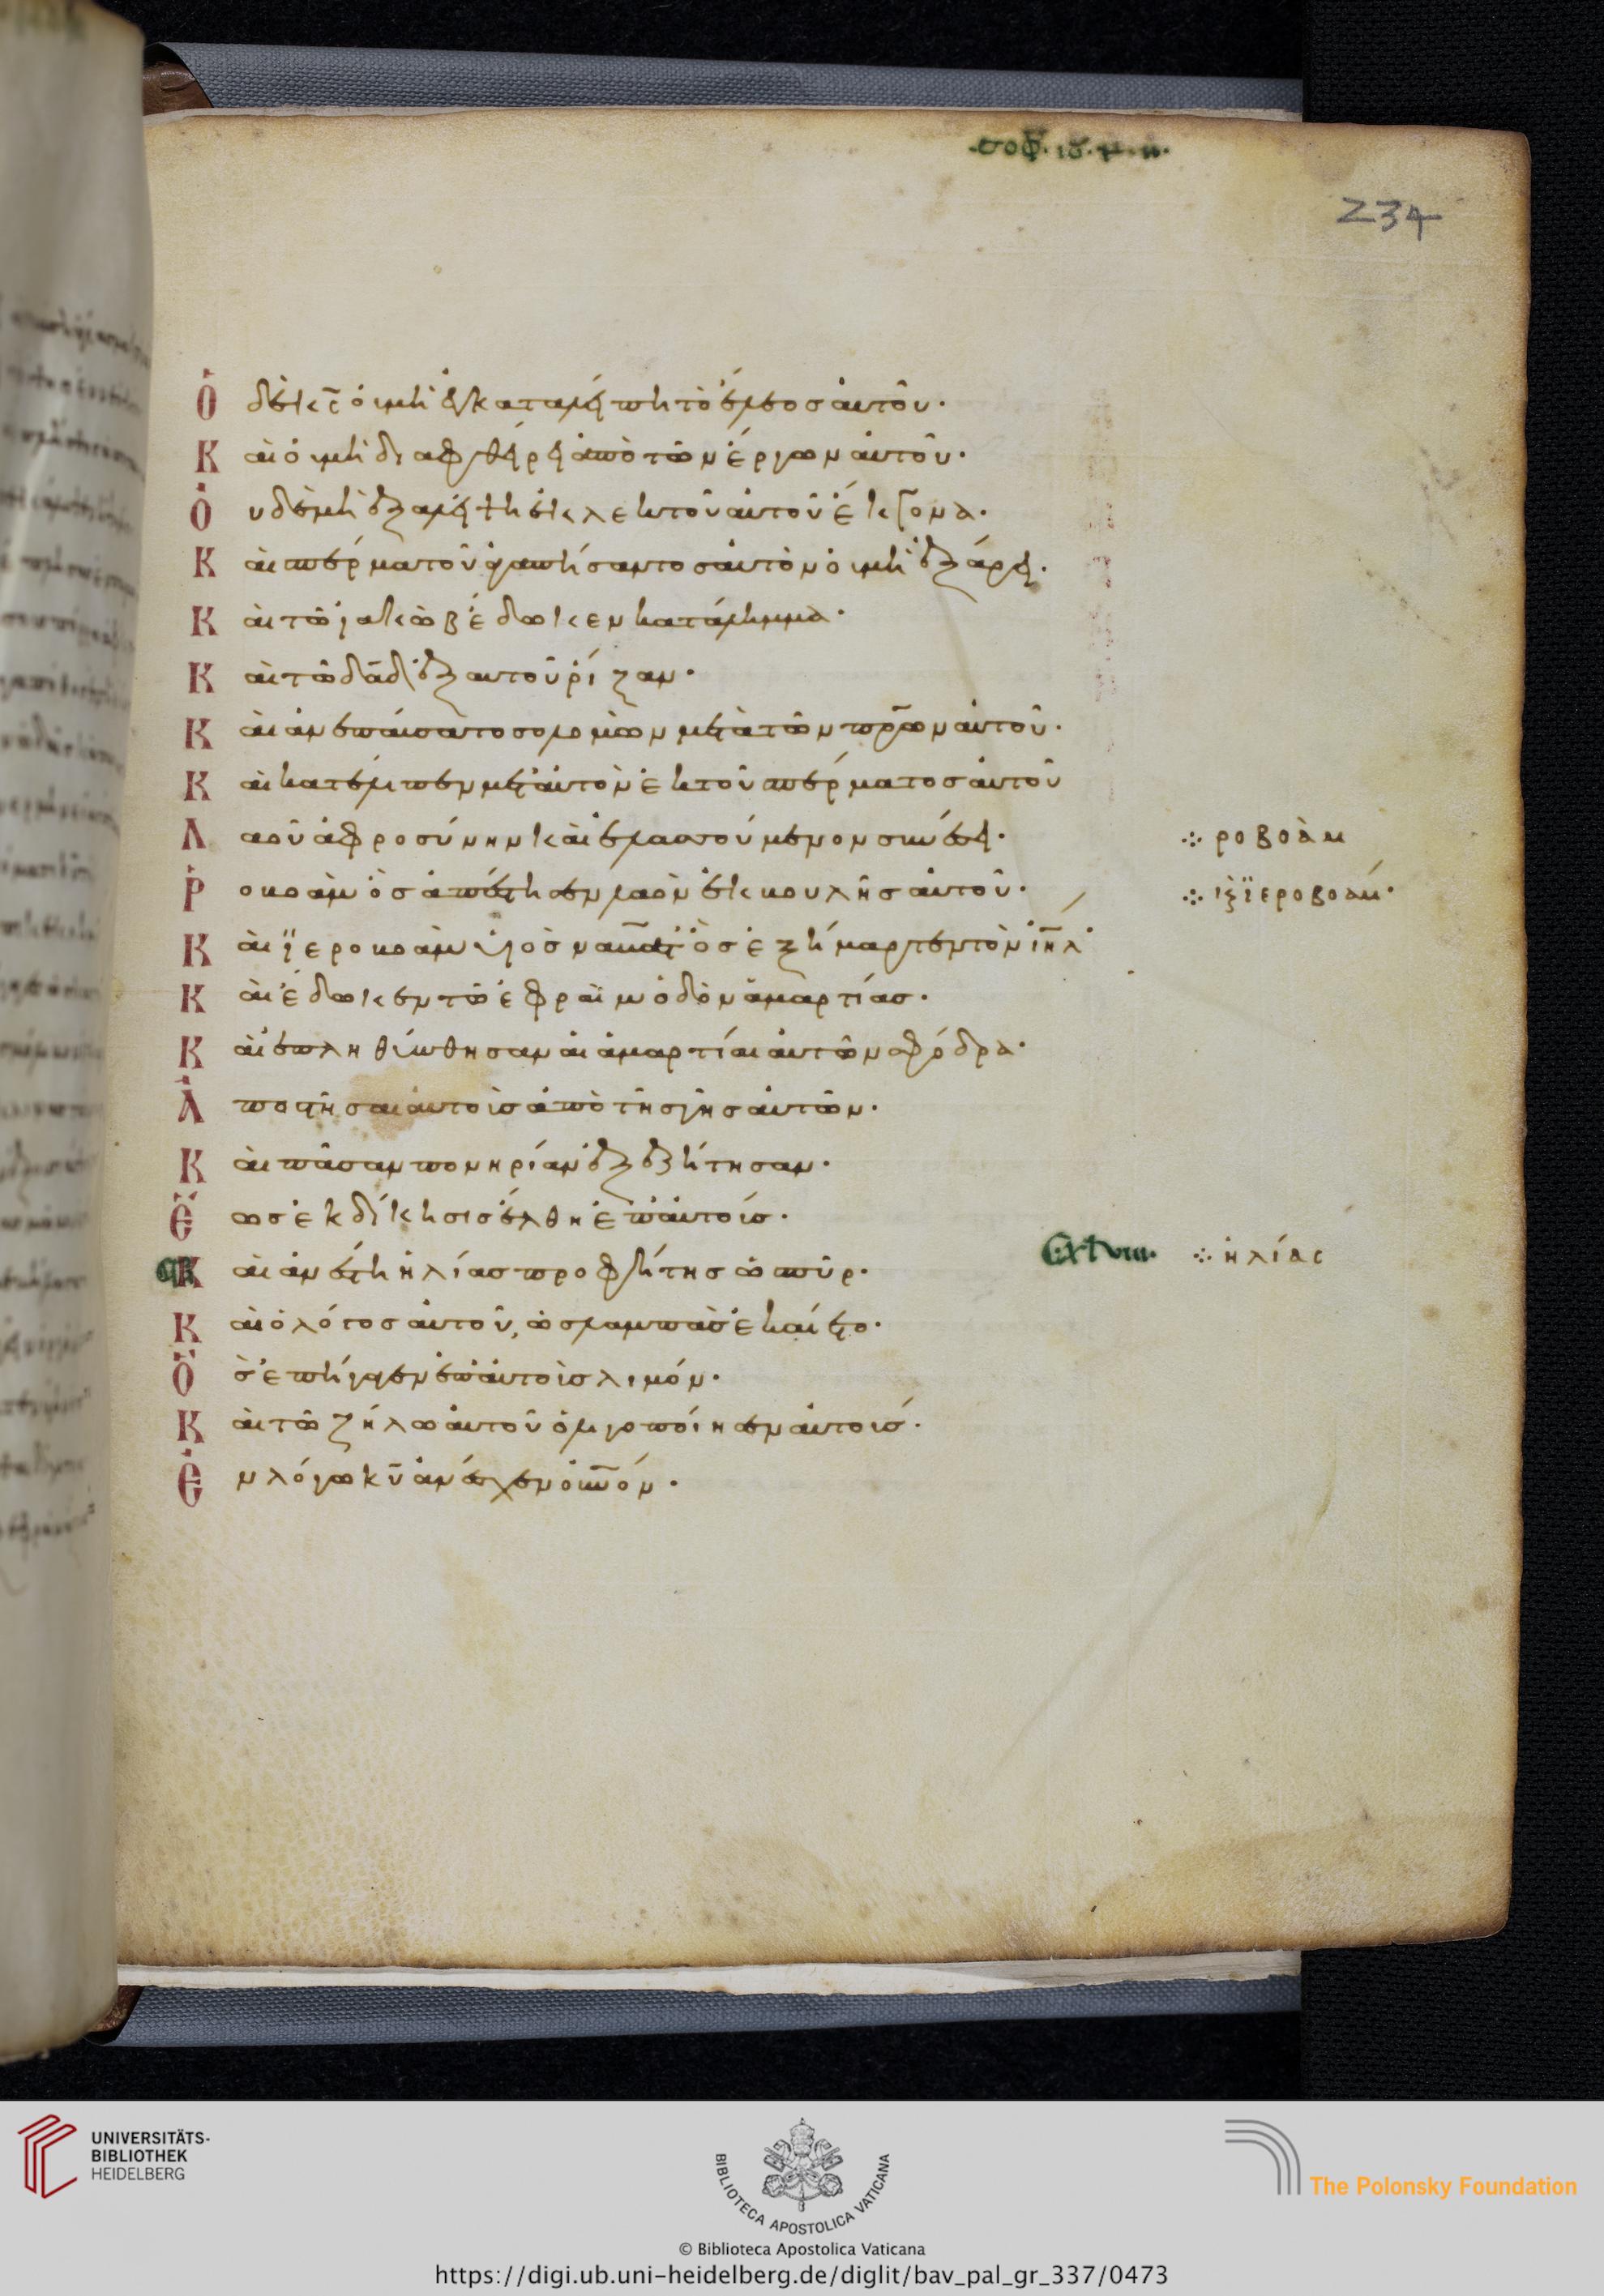 σοφ. ιδ. κ. κ.
234
Ὁ δὲ κ̅ς̅ ὁ μὴ ἐγκαταλείπη τὸ ἔλεος αὐτοῦ·
Καὶ ὁ μὴ διαφθείρει ἀπὸ τῶν ἔργων αὐτοῦ·
Ὀυδὲ μὴ ἐξαλείψη ἐκλεκτοῦ αὐτοῦ ἔκγονα·
Καὶ σπέρμα τοῦ ἀγαπήσαντος αὐτὸν ὁ μὴ ἐξάρει·
Καὶ τῶ ϊακὼβ ἔδωκεν κατάλημμα·
Καὶ τῶ δ̅α̅δ̅ ἐξ αυτοῦ ῥίζαν·
Καὶ ἀνεπαύσατο σολομὼν μετὰ τῶν πρ̅ων αὐτοῦ·
Καὶ κατέλιπεν μετ' αὐτὸν ἐκ τοῦ σπέρματος αὐτοῦ
Λαοῦ ἀφροσύνην καὶ ἐλασσούμενον συνέσει· ※ ροβοὰμ
Ῥοβοὰμ ὃς ἀπέστησεν λαὸν ἐκ βουλῆς αὐτοῦ· ※ ϊεροβοάμ·
Καὶ ϊεροβοὰμ υἱὸς ναβὰτ ὃς ἐξήμαρτεν τὸν ι̅η̅λ̅
Καὶ ἔδωκεν τῶ ἐφραῒμ ὁδὸν ἁμαρτίας·
Καὶ ἐπληθύνθησαν αἱ ἁμαρτίαι αὐτῶν σφόδρα·
Ἀποστῆσαι αὐτοὺς ἀπὸ τῆς γῆς αὐτῶν·
Καὶ πᾶσαν πονηρίαν ἐξεζήτησαν·
Ἕως ἐκδίκησις ἔλθη ἐπ' αὐτούς·
Καὶ ἀνέστη ἠλίας προφήτης ὡς πῦρ· ※ ἠλίας
Καὶ ὁ λόγος αὐτοῦ, ὡς λαμπὰς ἐκαίετο·
Ὃς ἐπήγαγεν ἐπ' αὐτοὺς λιμόν·
Καὶ τῶ ζήλω αὐτοῦ ὀλιγοποίησεν αὐτούς·
Ἐν λόγω κ̅υ̅ ἀνέσχεν οὐ̅νόν·
UNIVERSITÄTS-
BIBLIOTHEK
HEIDELBERG
BIBLIOTECA APOSTOLICA VATICANA
The Polonsky Foundation
© Biblioteca Apostolica Vaticana
https://digi.ub.uni-heidelberg.de/diglit/bav_pal_gr_337/0473